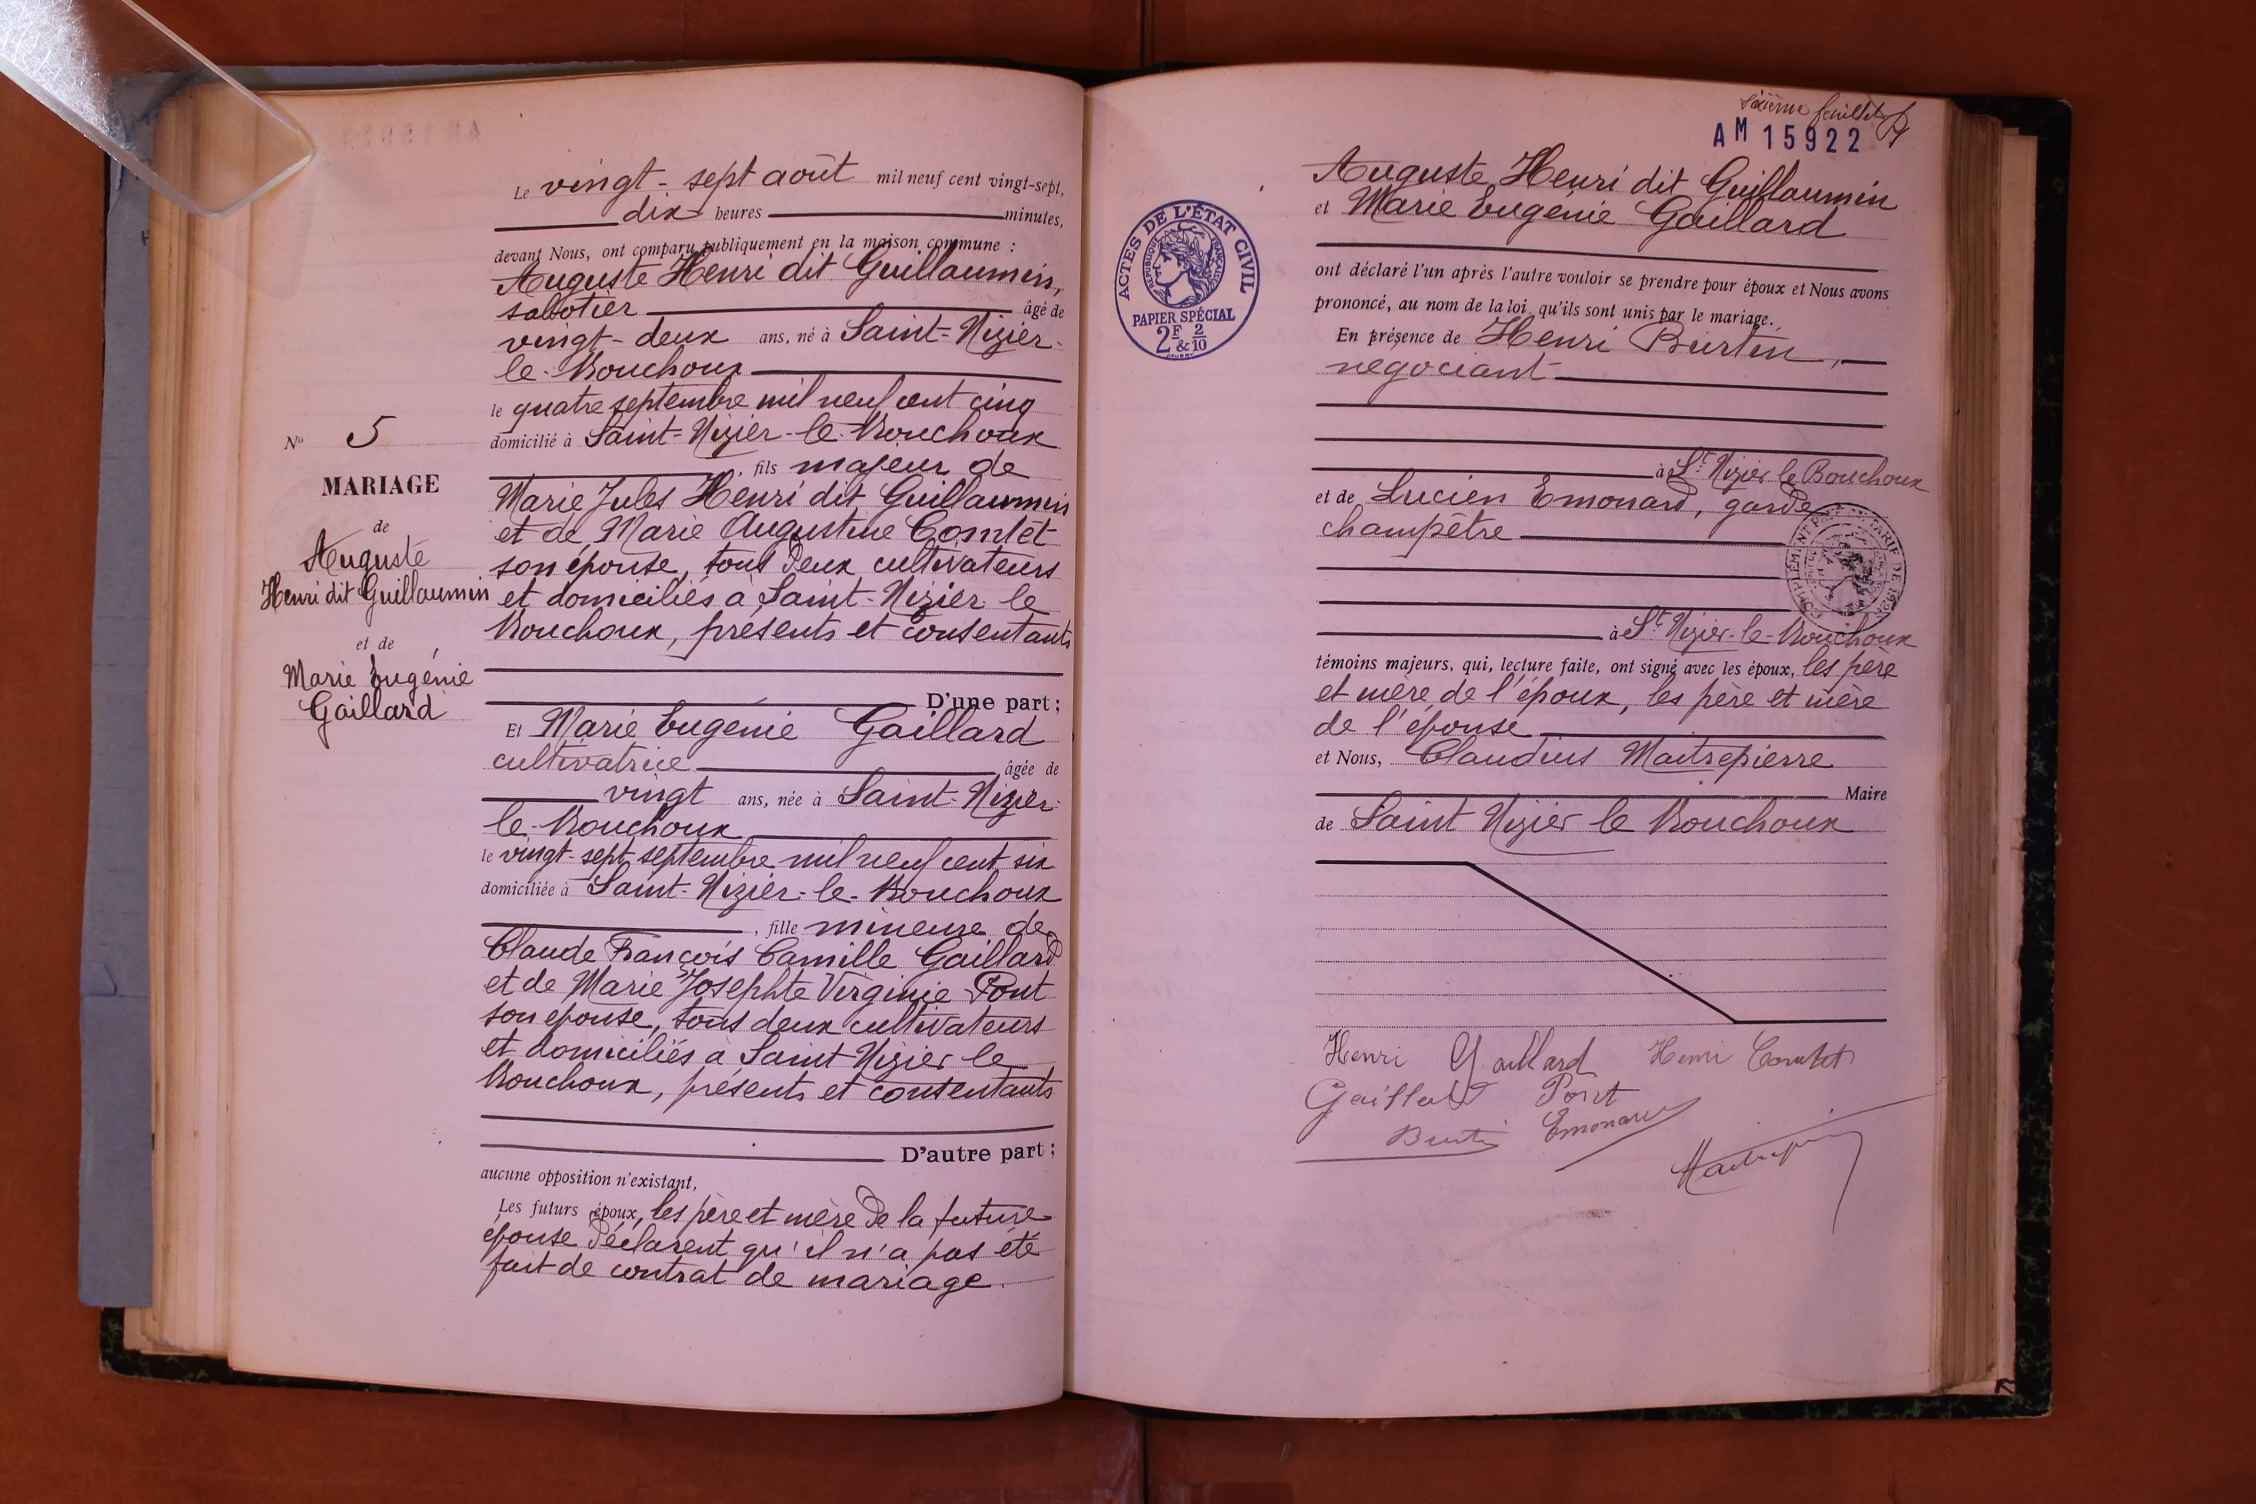 Le vingt-sept août mil neuf cent vingt-sept,
dix heures minutes,
devant Nous, ont comparu publiquement en la maison commune :
Auguste Henri dit Guillaumin,
sabotier âgé de
vingt-deux ans, né à Saint-Nizier-
le-Bouchoux
le quatre septembre mil neuf cent cinq
domicilié à Saint-Nizier-le-Bouchoux
, fils majeur de
Marie Jules Henri dit Guillaumin
et de Marie Augustine Comtet
son épouse, tous deux cultivateurs
et domiciliés à Saint-Nizier le
Bouchoux, présents et consentants
D'une part ;
Et Marie Eugénie Gaillard
cultivatrice âgée de
vingt ans, née à Saint-Nizier-
le-Bouchoux
le vingt-sept septembre mil neuf cent six
domiciliée à Saint-Nizier-le-Bouchoux
, fille mineure de
Claude François Camille Gaillard
et de Marie Josephte Virginie Pont
son épouse, tous deux cultivateurs
et domiciliés à Saint-Nizier le
Bouchoux, présents et consentants
D'autre part ;
aucune opposition n'existant,
Les futurs époux, les père et mère de la future
épouse déclarent qu'il n'a pas été
fait de contrat de mariage.
No 5
MARIAGE
de
Auguste
Henri dit Guillaumin
et de
Marie Eugénie
Gaillard
sixième feuillet
AM 15922
ACTES DE L'ÉTAT CIVIL
RÉPUBLIQUE FRANÇAISE
PAPIER SPÉCIAL
2F & 2/10
Auguste Henri dit Guillaumin
et Marie Eugénie Gaillard
ont déclaré l'un après l'autre vouloir se prendre pour époux et Nous avons
prononcé, au nom de la loi, qu'ils sont unis par le mariage.
En présence de Henri Burtin,
négociant
à St Nizier le Bouchoux
et de Lucien Emonard, garde
champêtre
à St Nizier-le-Bouchoux
témoins majeurs, qui, lecture faite, ont signé avec les époux, les père
et mère de l'époux, les père et mère
de l'épouse
et Nous, Claudius Maitrepierre
Maire
de Saint Nizier le Bouchoux
Henri Gaillard Henri Comtet
Gaillard Pont
Burtin Emonard
Maitrepierre